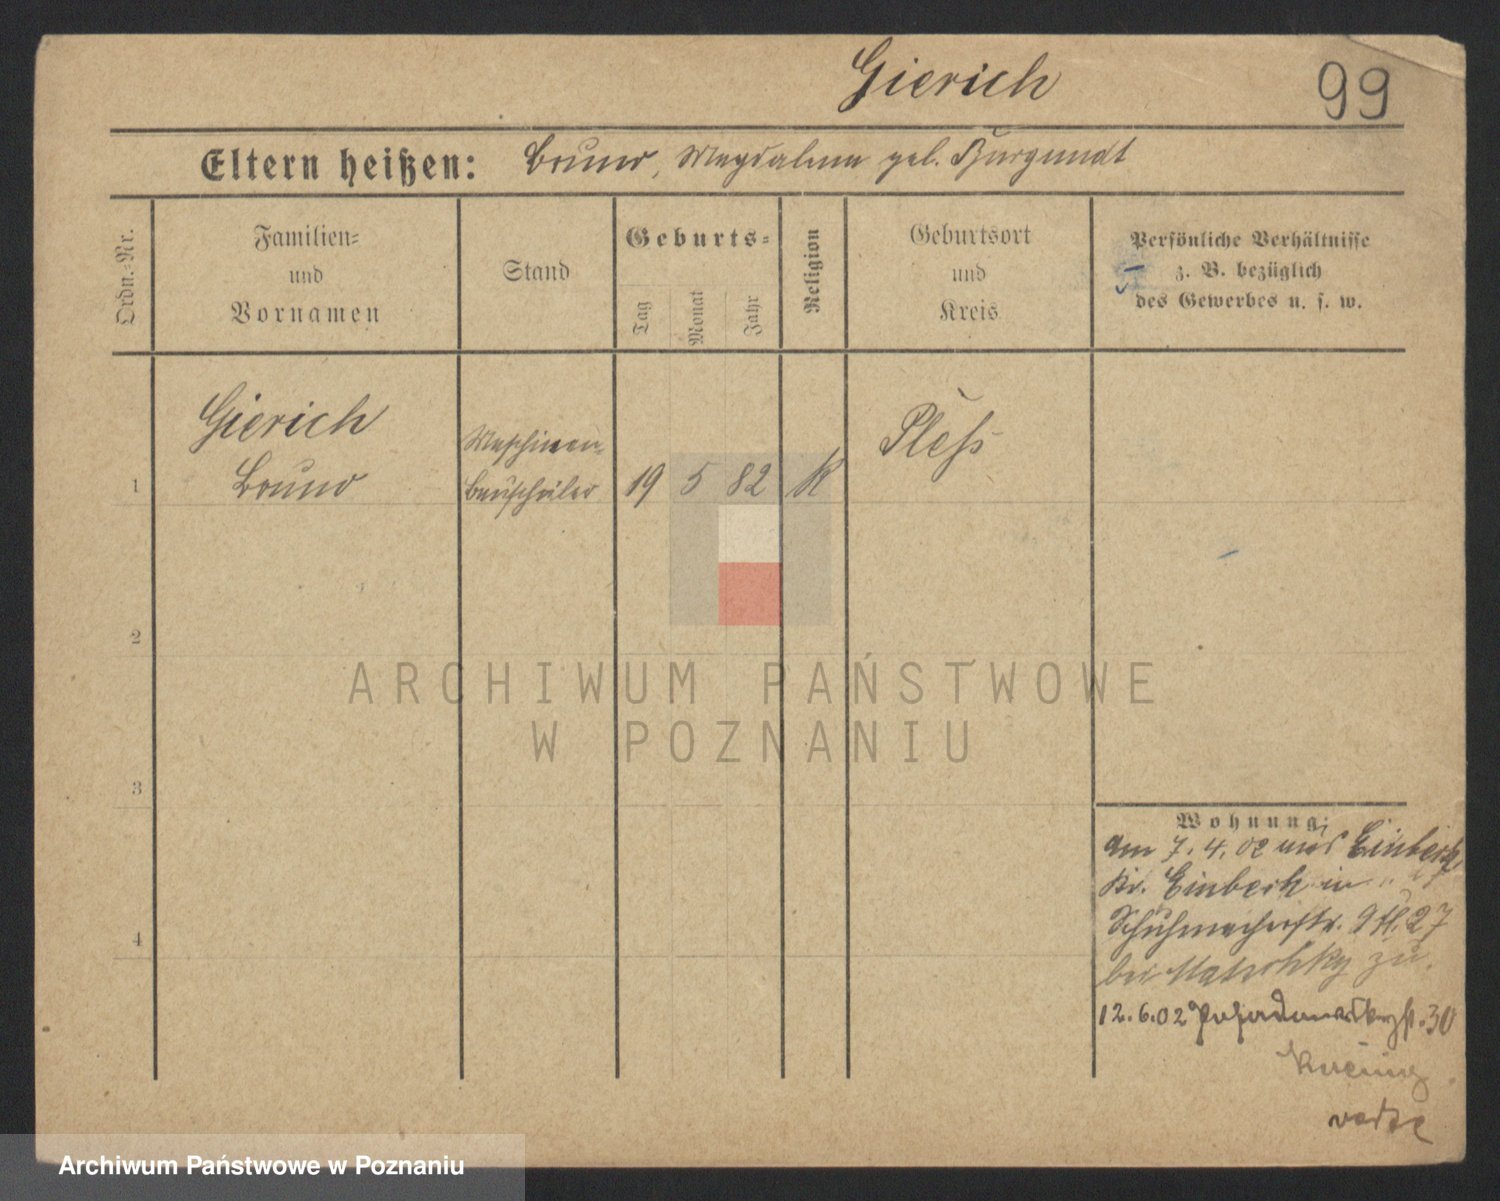 Gierich
99
Eltern heißen: Bruno, Magdalena geb. Burgundt
Ordn.-Nr.
Familien-
und
Vornamen
Stand
Geburts-
Tag
Monat
Jahr
Religion
Geburtsort
und
Kreis
Persönliche Verhältnisse
z. B. bezüglich
des Gewerbes u. s. w.
1
Gierich
Bruno
Maschinen-
bauschüler
19 5 82
K
Pleß
2
3
4
Wohnung:
am 7. 4. 02 aus Einbeck,
Kr. Einbeck in
Schuhmacherstr. 9 II. 27
bei zu.
12. 6. 02 Posadowskystr. 30
ARCHIWUM PAŃSTWOWE
W POZNANIU
Archiwum Państwowe w Poznaniu